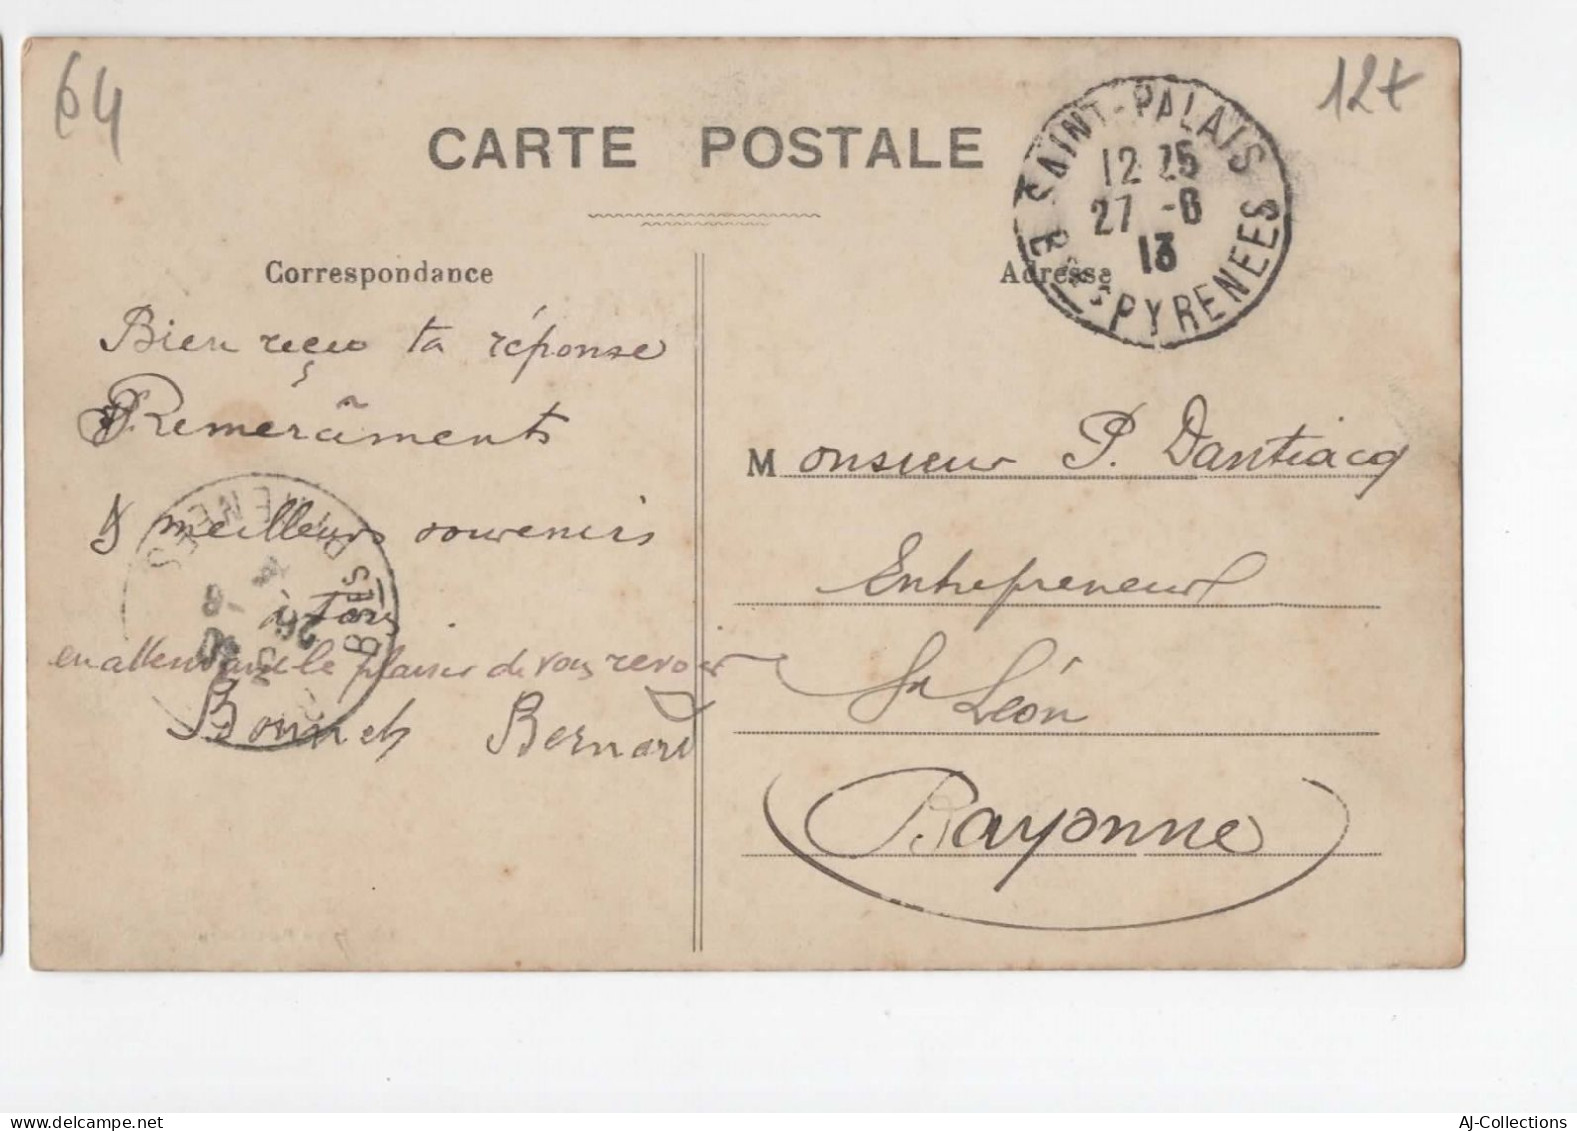 64
12+
CARTE POSTALE
SAINT-PALAIS
12 25
27 -6
13
BSES PYRENEES
Correspondance
Adresse
Bien reçu ta réponse
Remerciments
& meilleurs souvenirs
à tous
en attendant le plaisir de vous revoir
Bernard
Monsieur P. Dantiacq
Entrepreneur
St Léon
Bayonne
BSES PYRENEES
AJ-Collections